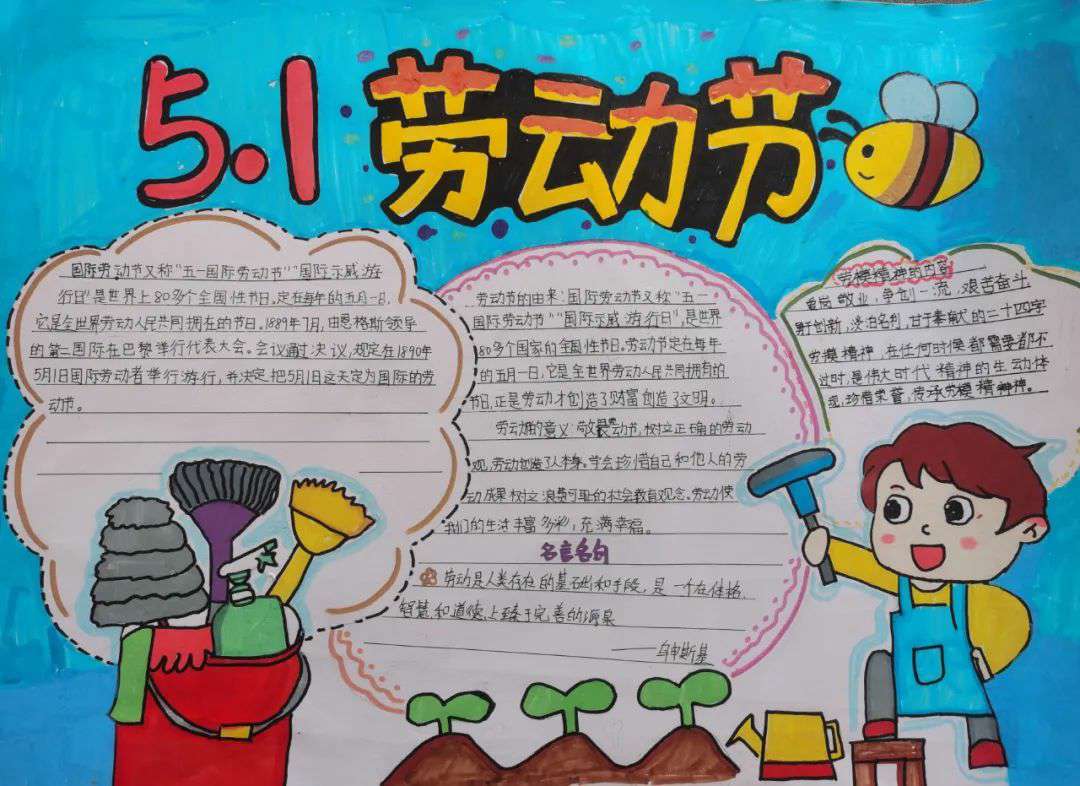 5.1 劳动节
国际劳动节又称"五一国际劳动节""国际示威游
行日"是世界上80多个全国性节日。定在每年的五月一日,
它是全世界劳动人民共同拥在的节日。1889年7月,由恩格斯领导
的第二国际在巴黎举行代表大会。会议通过决议,规定在1890年
5月1日国际劳动者举行游行,并决定把5月1日这天定为国际的劳
动节。
劳动节的由来:国际劳动节又称"五一
国际劳动节""国际示威游行日",是世界
80多个国家的全国性节日。劳动节定在每年
的五月一日,它是全世界劳动人民共同拥有的
节日,正是劳动才创造了财富创造了文明。
劳动节的意义:敬最动节,树立正确的劳动
观,劳动创造了人本身。学会珍惜自己和他人的劳
动成果树立浪费可耻的社会教育观念。劳动使
我们的生活丰富多彩,充满幸福。
名言名句
劳动是人类存在的基础和手段,是一个在体格、
智慧和道德上臻于完善的源泉
——乌申斯基
劳模精神的内容
爱岗敬业,争创一流,艰苦奋斗
野创新,淡泊名利,甘于奉献的二十四字
劳模精神,在任何时候都需要都不
过时,是伟大时代精神的生动体
现,珍惜荣誉,传承劳模精神神。